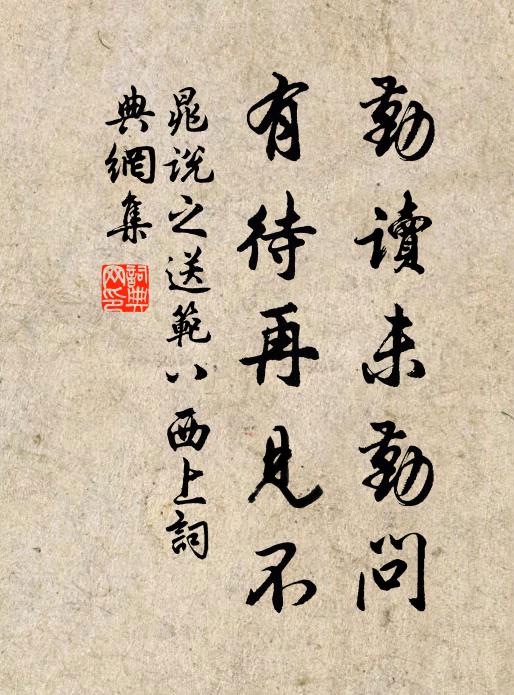 勤讀未勤問
有待再見不
晁說之送範八西上詞
典網集
詞典網印